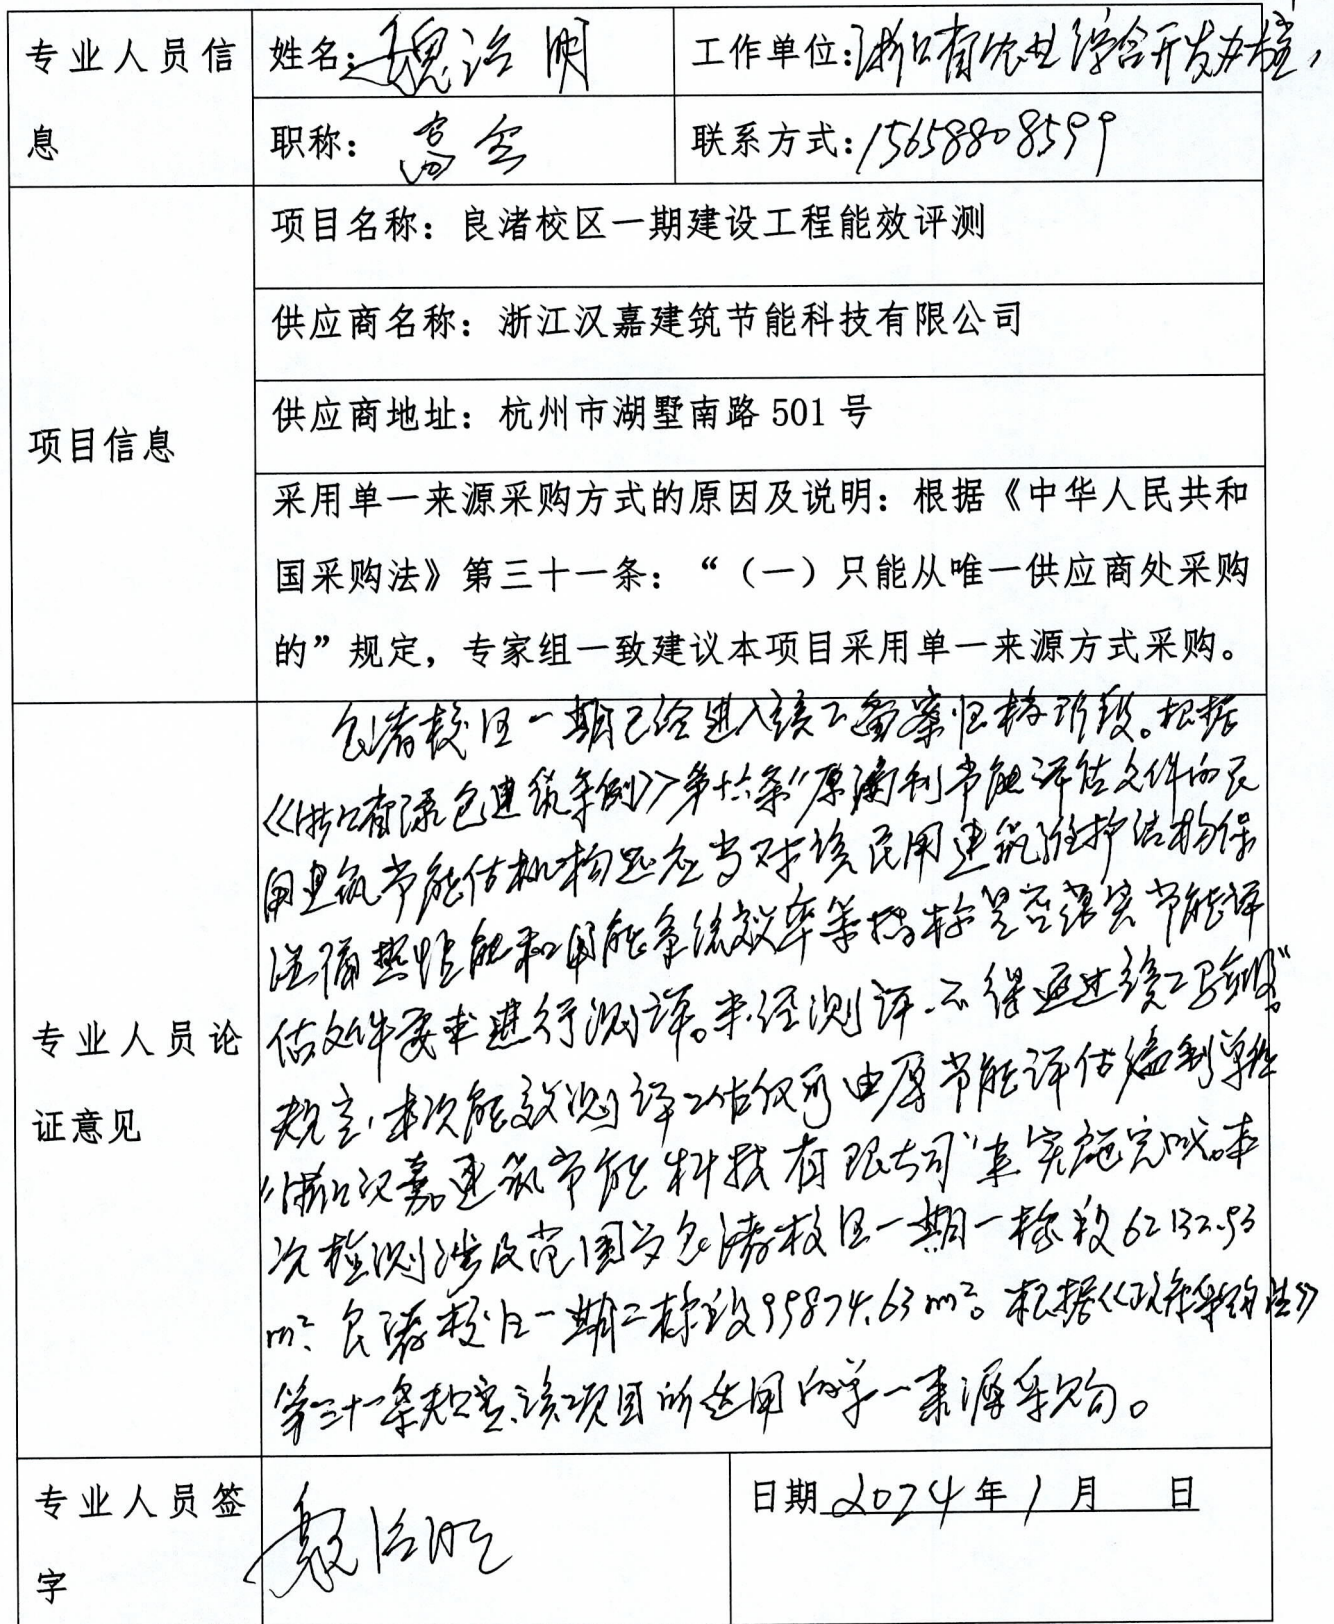 专业人员信息
姓名：魏治明
工作单位：浙江省农业综合开发办
职称：高会
联系方式：15658808599
项目信息
项目名称：良渚校区一期建设工程能效评测
供应商名称：浙江汉嘉建筑节能科技有限公司
供应商地址：杭州市湖墅南路 501 号
采用单一来源采购方式的原因及说明：根据《中华人民共和
国采购法》第三十一条：“（一）只能从唯一供应商处采购
的”规定，专家组一致建议本项目采用单一来源方式采购。
专业人员论证意见
良渚校区一期已经进入竣工备案归档阶段。根据
《浙江省绿色建筑条例》第十六条“原编制节能评估文件的民
用建筑节能评估机构应当对该民用建筑维护结构保
温隔热性能和用能系统效率等指标是否落实节能评
估文件要求进行测评。未经测评，不得通过竣工验收”
规定，本次能效测评工作仅可由原节能评估编制单位
“浙江汉嘉建筑节能科技有限公司”来实施完成。本
次检测涉及范围为良渚校区一期一标段62132.93
m²、良渚校区一期二标段99874.63m²。根据《政府采购法》
第三十一条规定，该项目所适用的单一来源采购。
专业人员签字
魏治明
日期 2024 年 1 月 日